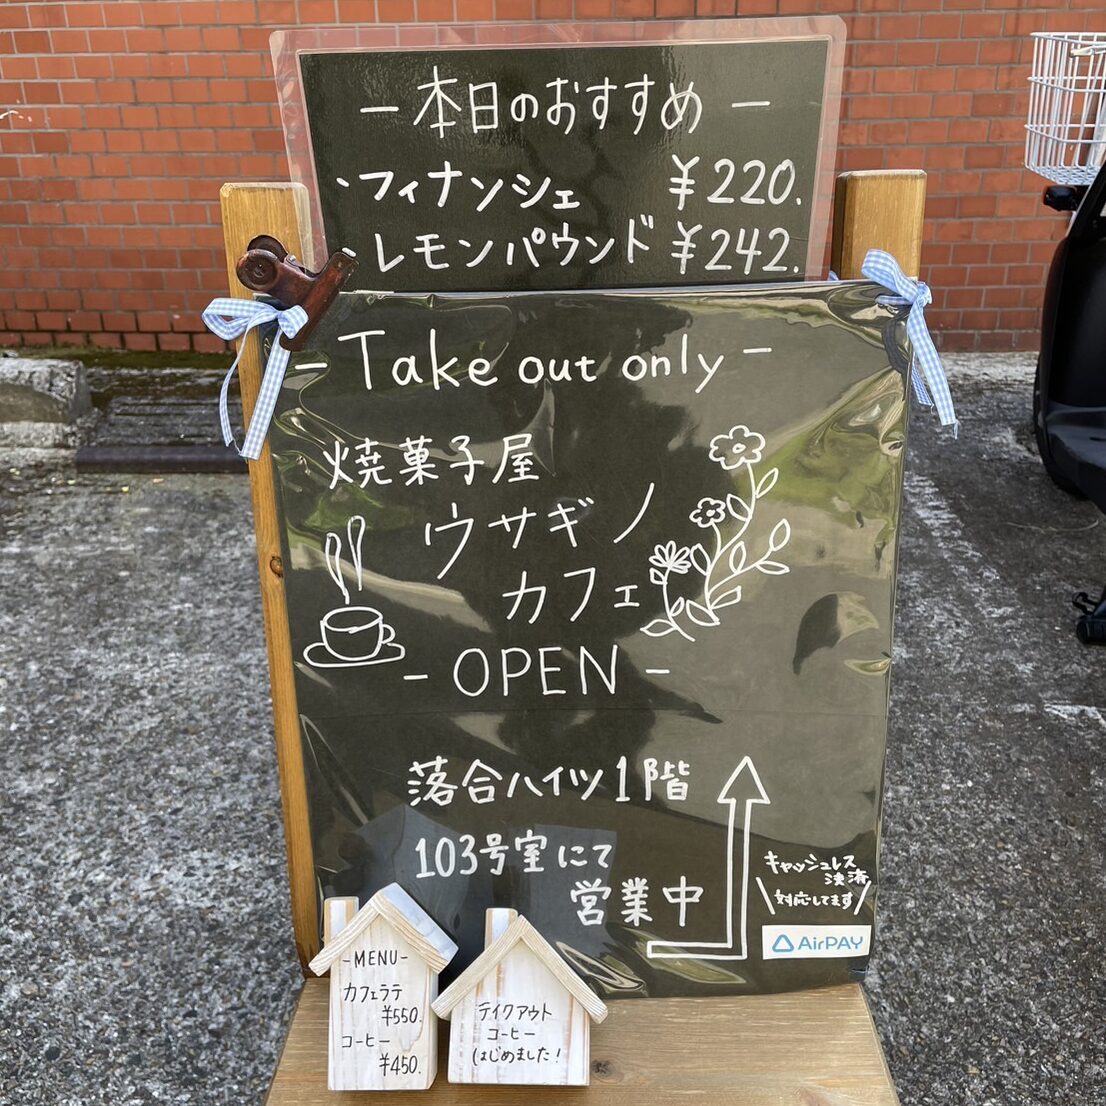 －本日のおすすめ－
・フィナンシェ ¥220.
・レモンパウンド ¥242.
－Take out only－
焼菓子屋
ウサギノ
カフェ
－OPEN－
落合ハイツ1階
103号室にて
営業中
キャッシュレス
決済
\対応してます/
AirPAY
－MENU－
カフェラテ
¥550.
コーヒー
¥450.
テイクアウト
コーヒー
はじめました！